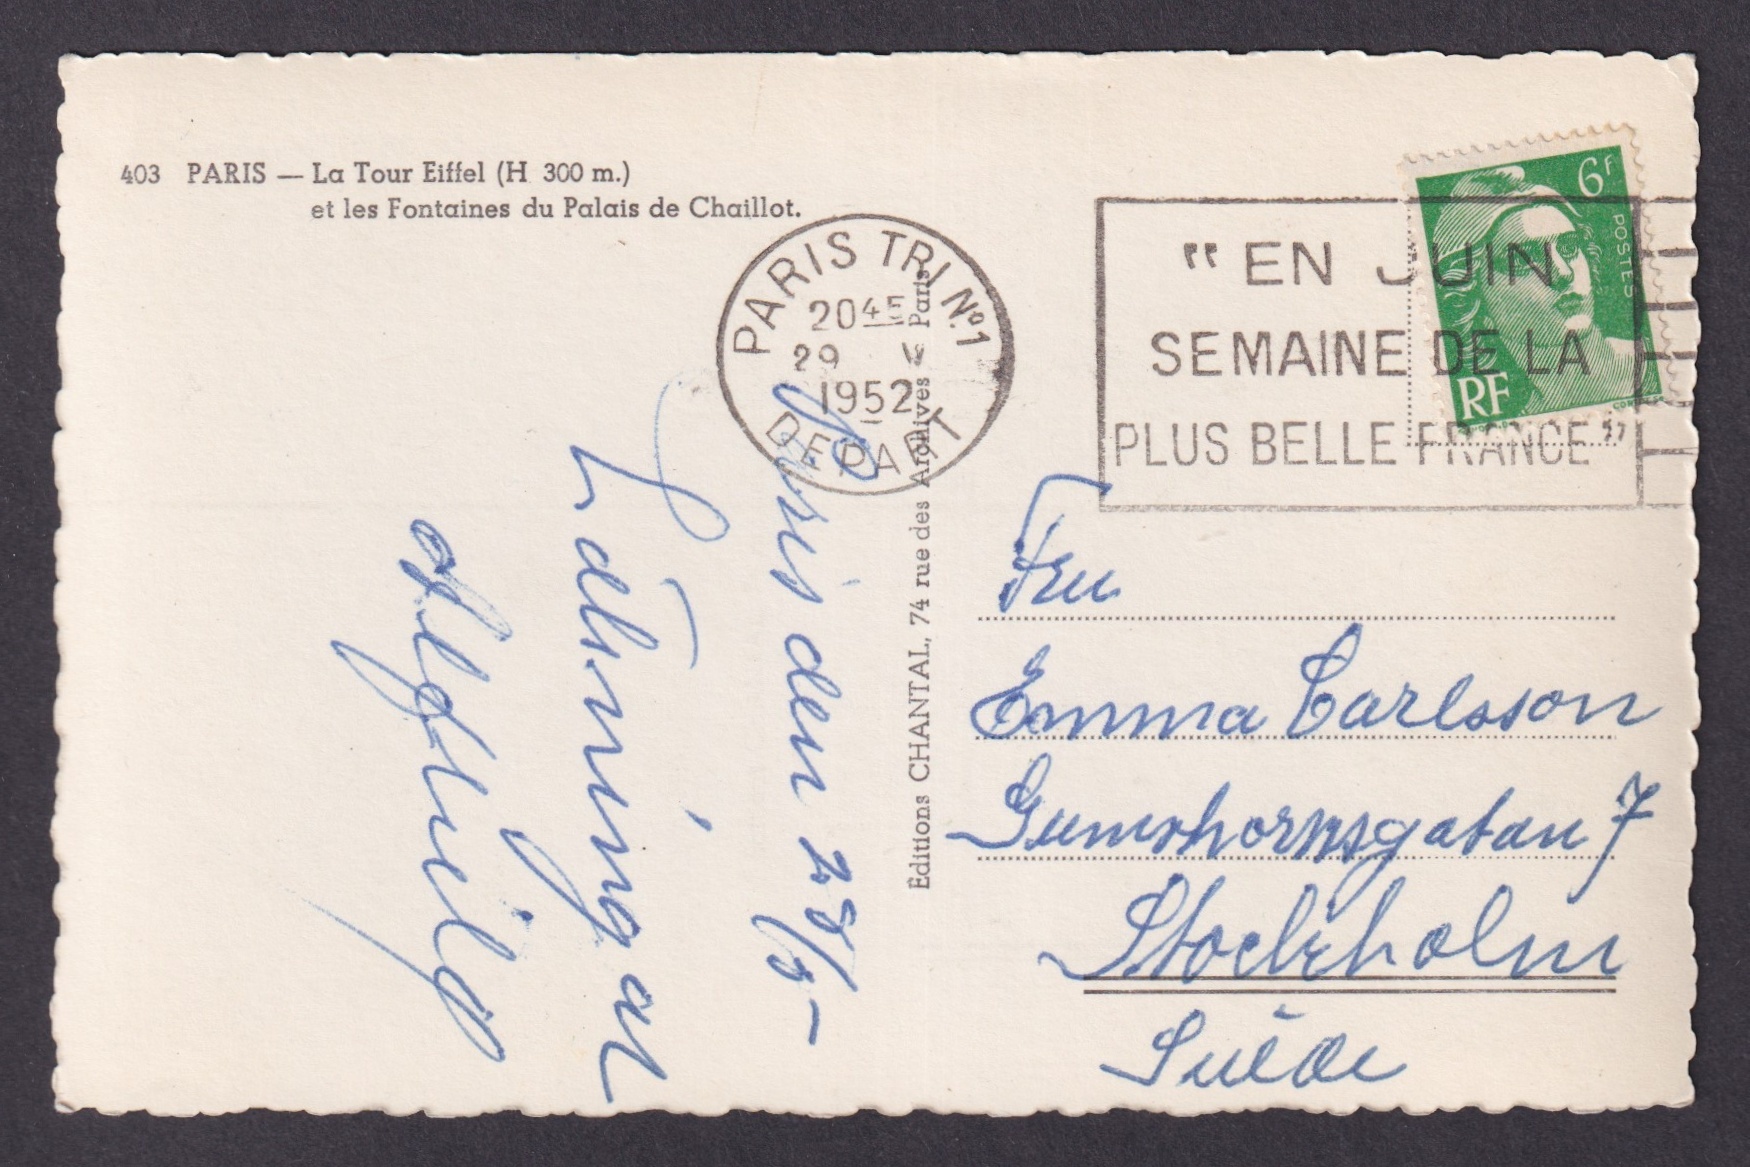 403 PARIS — La Tour Eiffel (H 300 m.)
et les Fontaines du Palais de Chaillot.
PARIS TRI Nº1
20 45
29
1952
DEPART
" EN JUIN
SEMAINE DE LA
PLUS BELLE FRANCE "
6F
POSTES
RF
Éditions CHANTAL, 74 rue des Archives - Paris
Paris den 28/5-
Hälsningar
Fru
Emma Carlsson
Gumshornsgatan 7
Stockholm
Suède